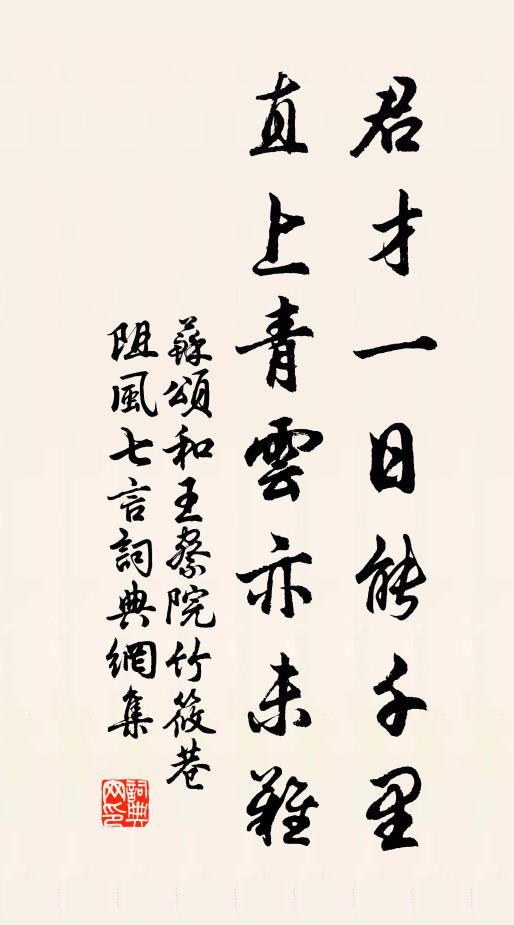 君才一日能千里
直上青雲亦未難
蘇頌和王察院竹筱巷
阻風七言詞典網集
詞典网印